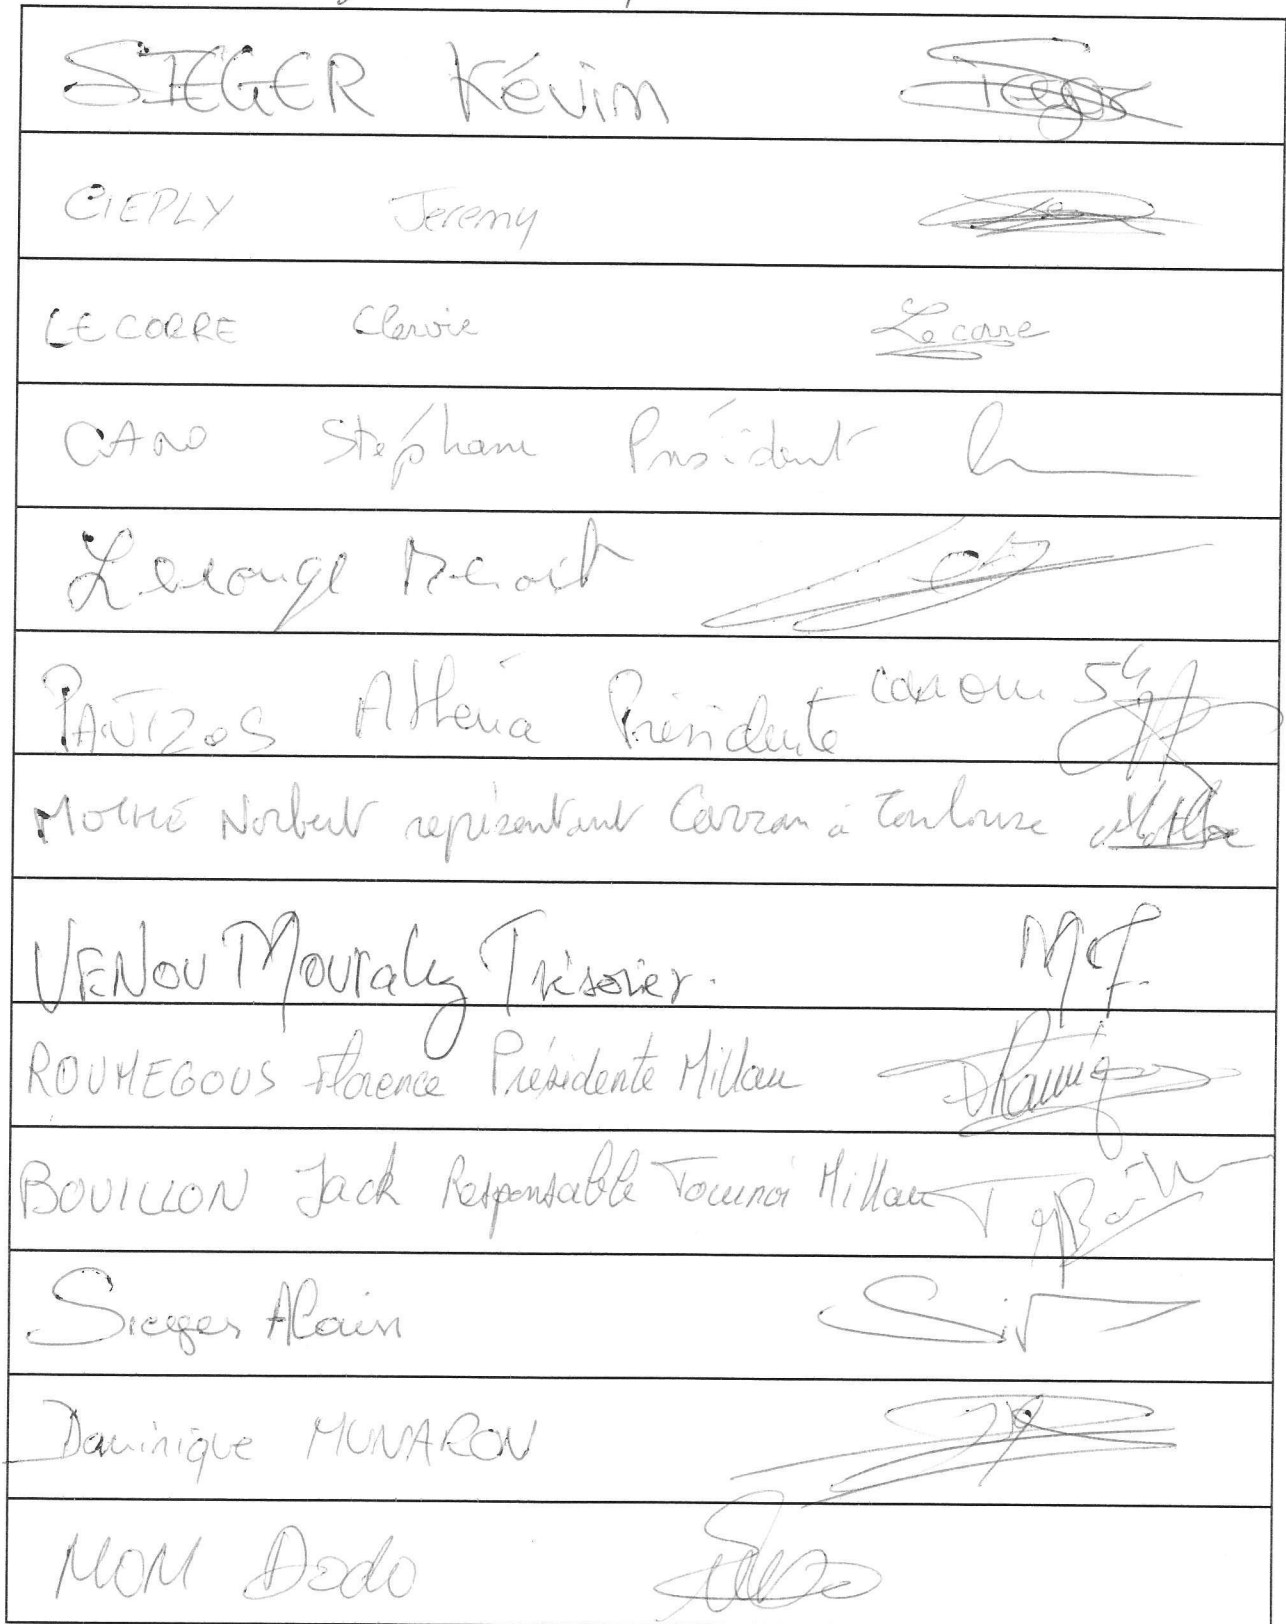 SIEGER Kévin Sieger
CIEPLY Jeremy
LE CORRE Clervie Le corre
CANO Stéphane Président
Lerouge Benoit
PANTZOS Athéna Présidente
MOTHÉ Norbert représentant Carzan à Toulouse
VENOU Mouraly Trésorier.
ROUMEGOUS Florence Présidente Millau
BOUILLON Jack Responsable Tournoi Millau
Sieger Alain
Dominique MUNARON
MOM Dodo